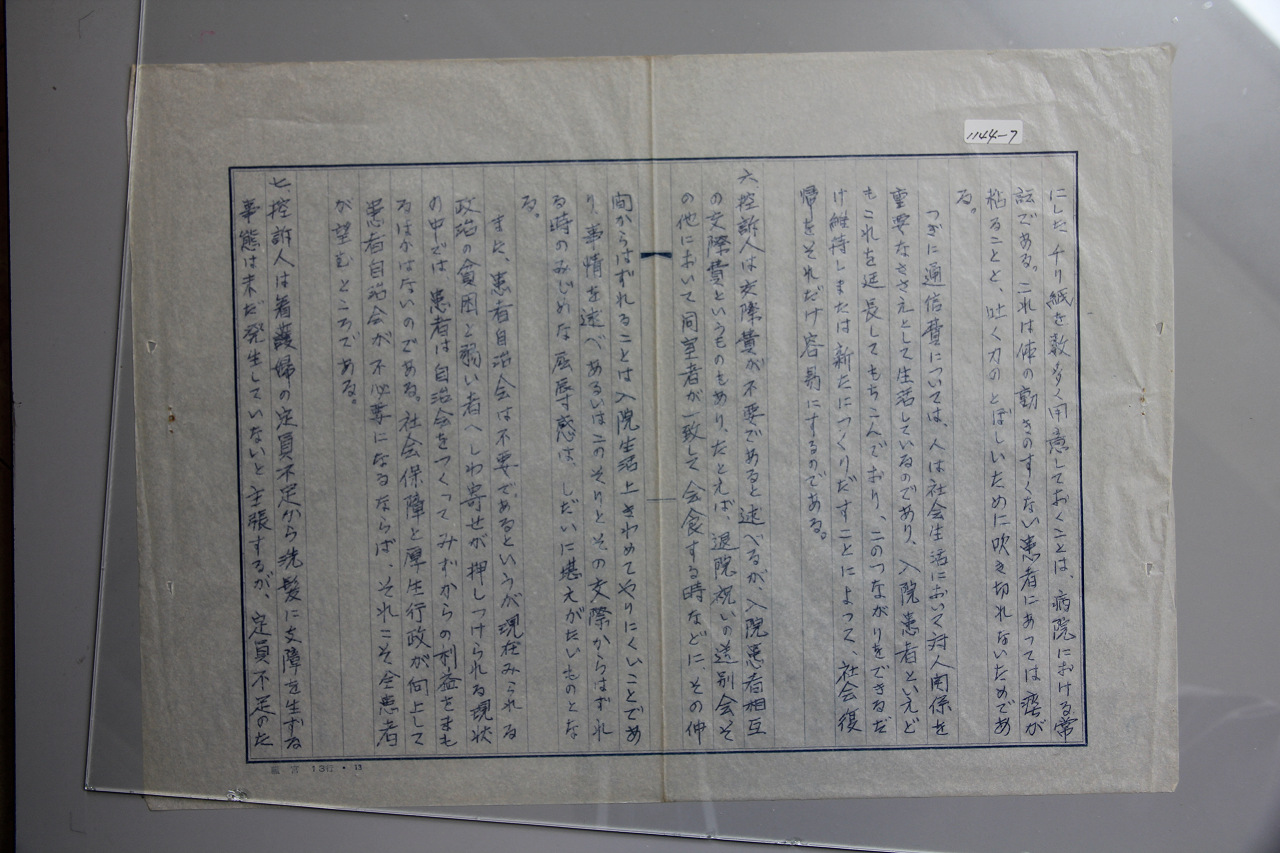 1144-7
にしたチリ紙を数多く用意しておくことは、病院における常
訟である。これは体の動きのすくない患者にあっては痰が
粘ることと、吐く力のとぼしいために吹き切れないためであ
る。
つぎに通信費については、人は社会生活において対人関係を
重要なささえとして生活しているのであり、入院患者といえど
もこれを延長してもちこんでおり、このつながりをできるだ
け維持しまたは新たにつくりだすことによって、社会復
帰をそれだけ容易にするのである。
六、控訴人は交際費が不要であると述べるが、入院患者相互
の交際費というものもあり、たとえば、退院祝いの送別会そ
の他において同室者が一致して会食する時などに、その仲
間からはずれることは入院生活上きわめてやりにくいことであ
り、事情を述べあるいはこのそりとその交際からはずれ
る時のみじめな屈辱感は、しだいに堪えがたいものとな
る。
また、患者自治会は不要であるというが現在みられる
政治の貧困と弱い者へしわ寄せが押しつけられる現状
の中では患者は自治会をつくってみずからの利益をまも
るほかはないのである。社会保障と厚生行政が向上して
患者自治会が不必要になるならば、それこそ全患者
が望むところである。
七、控訴人は看護婦の定員不足から洗髪に支障を生ずる
事態は未だ発生していないと主張するが、定員不足のた
13行・13